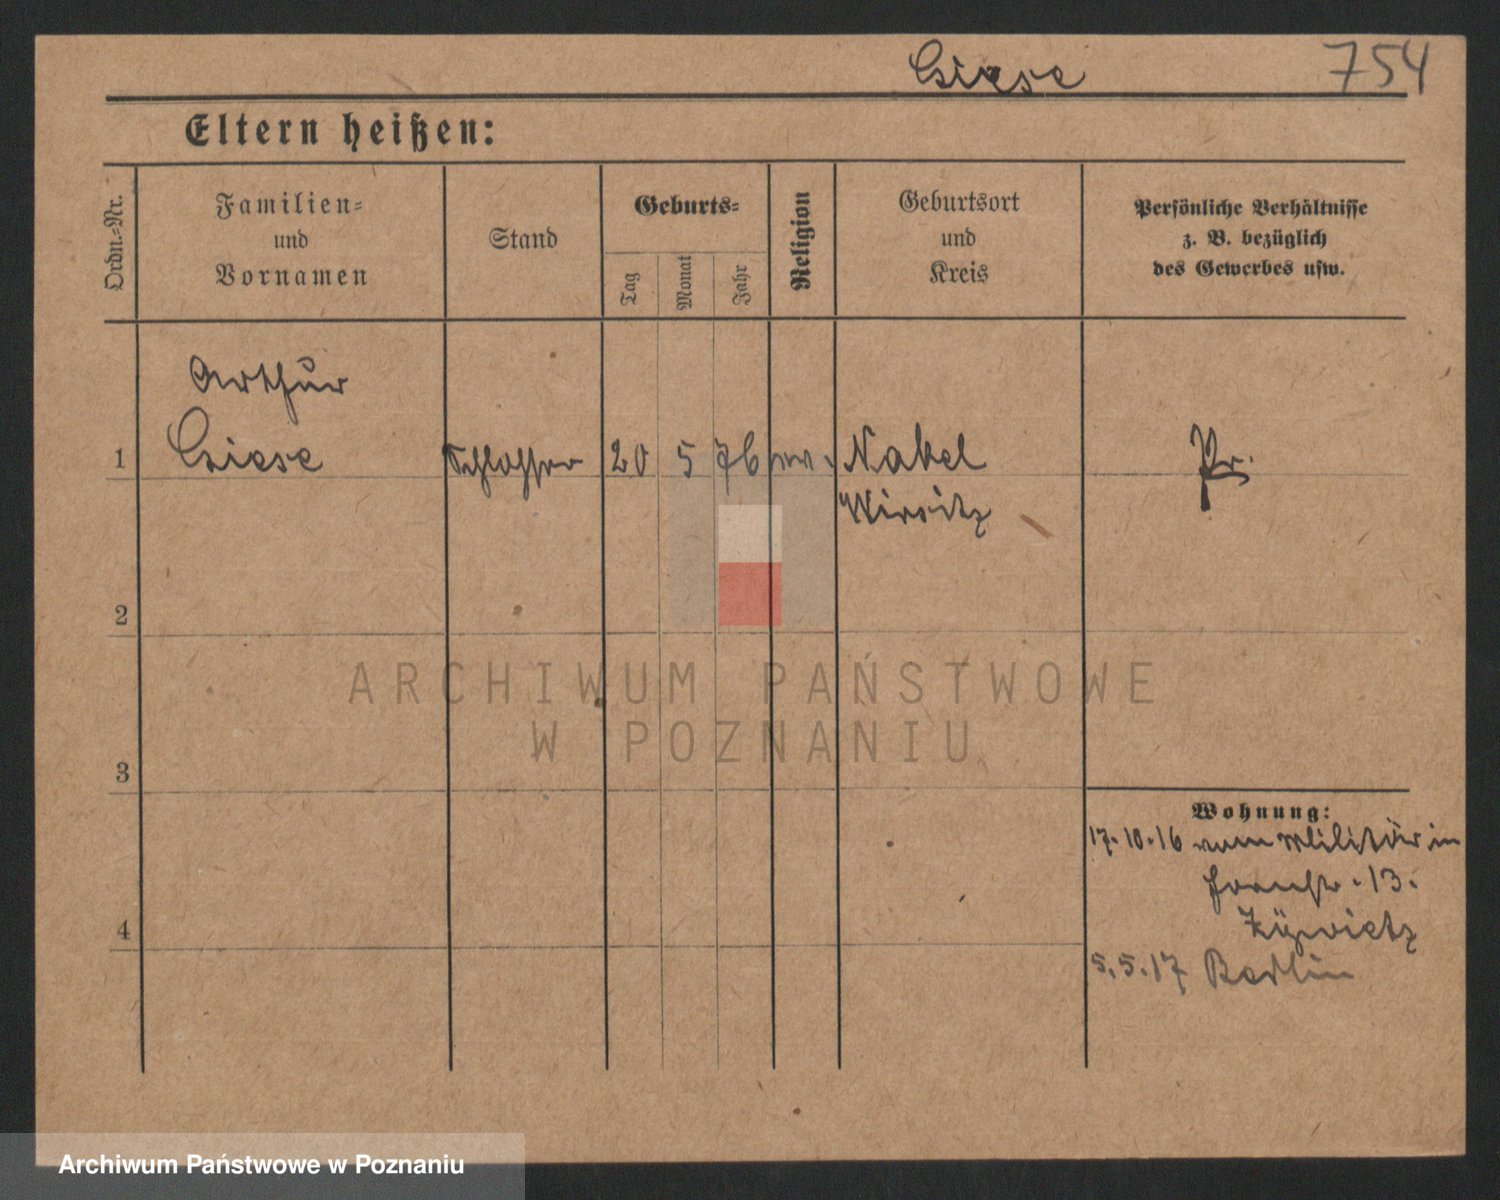 Giese 754
Eltern heißen:
Ordn.-Nr.
Familien-
und
Vornamen
Stand
Geburts-
Tag
Monat
Jahr
Religion
Geburtsort
und
Kreis
Persönliche Verhältnisse
z. B. bezüglich
des Gewerbes usw.
Arthur
1 Giese Schlosser 20 5 76 Nakel Pr.
Wirsitz
2
3
4
Wohnung:
17.10.16 vom Militär in
13.
5.5.17 Berlin
ARCHIWUM PAŃSTWOWE
W POZNANIU
Archiwum Państwowe w Poznaniu